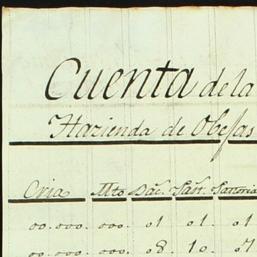 Cuenta de la
Hazienda de Obejas
Cria Mto Dac. Satr. Sartoria
00. 000. 000. 01 01. 01
00. 000. 000. 08 10. 07